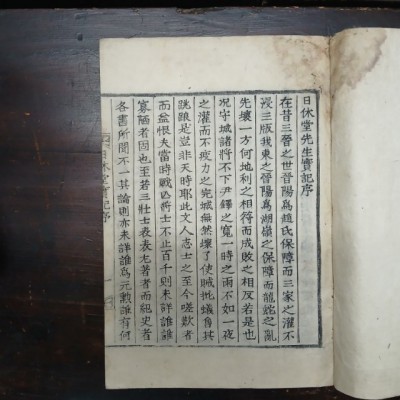 日休堂先生實記序
在昔三晉之世晉陽爲趙氏保障而三家之灌不
浸三版我東之晉陽爲湖嶺之保障而龍蛇之亂
先壞一方何地利之相符而成敗之相反若是也
况守城諸將不下尹鐸之寬一時之雨不如一夜
之灌而不疲力之完城無然壞了使賊批蟻肆其
跳踉是豈非天時耶此文人志士之至今嗟歎者
而益恨夫當時戰亾將士不止百千則未詳誰誰
寡陋者固也至若三壯士表表尤著者而紀史者
各書所聞不一其論則亦未詳誰爲元勳誰有何
日休堂實記序